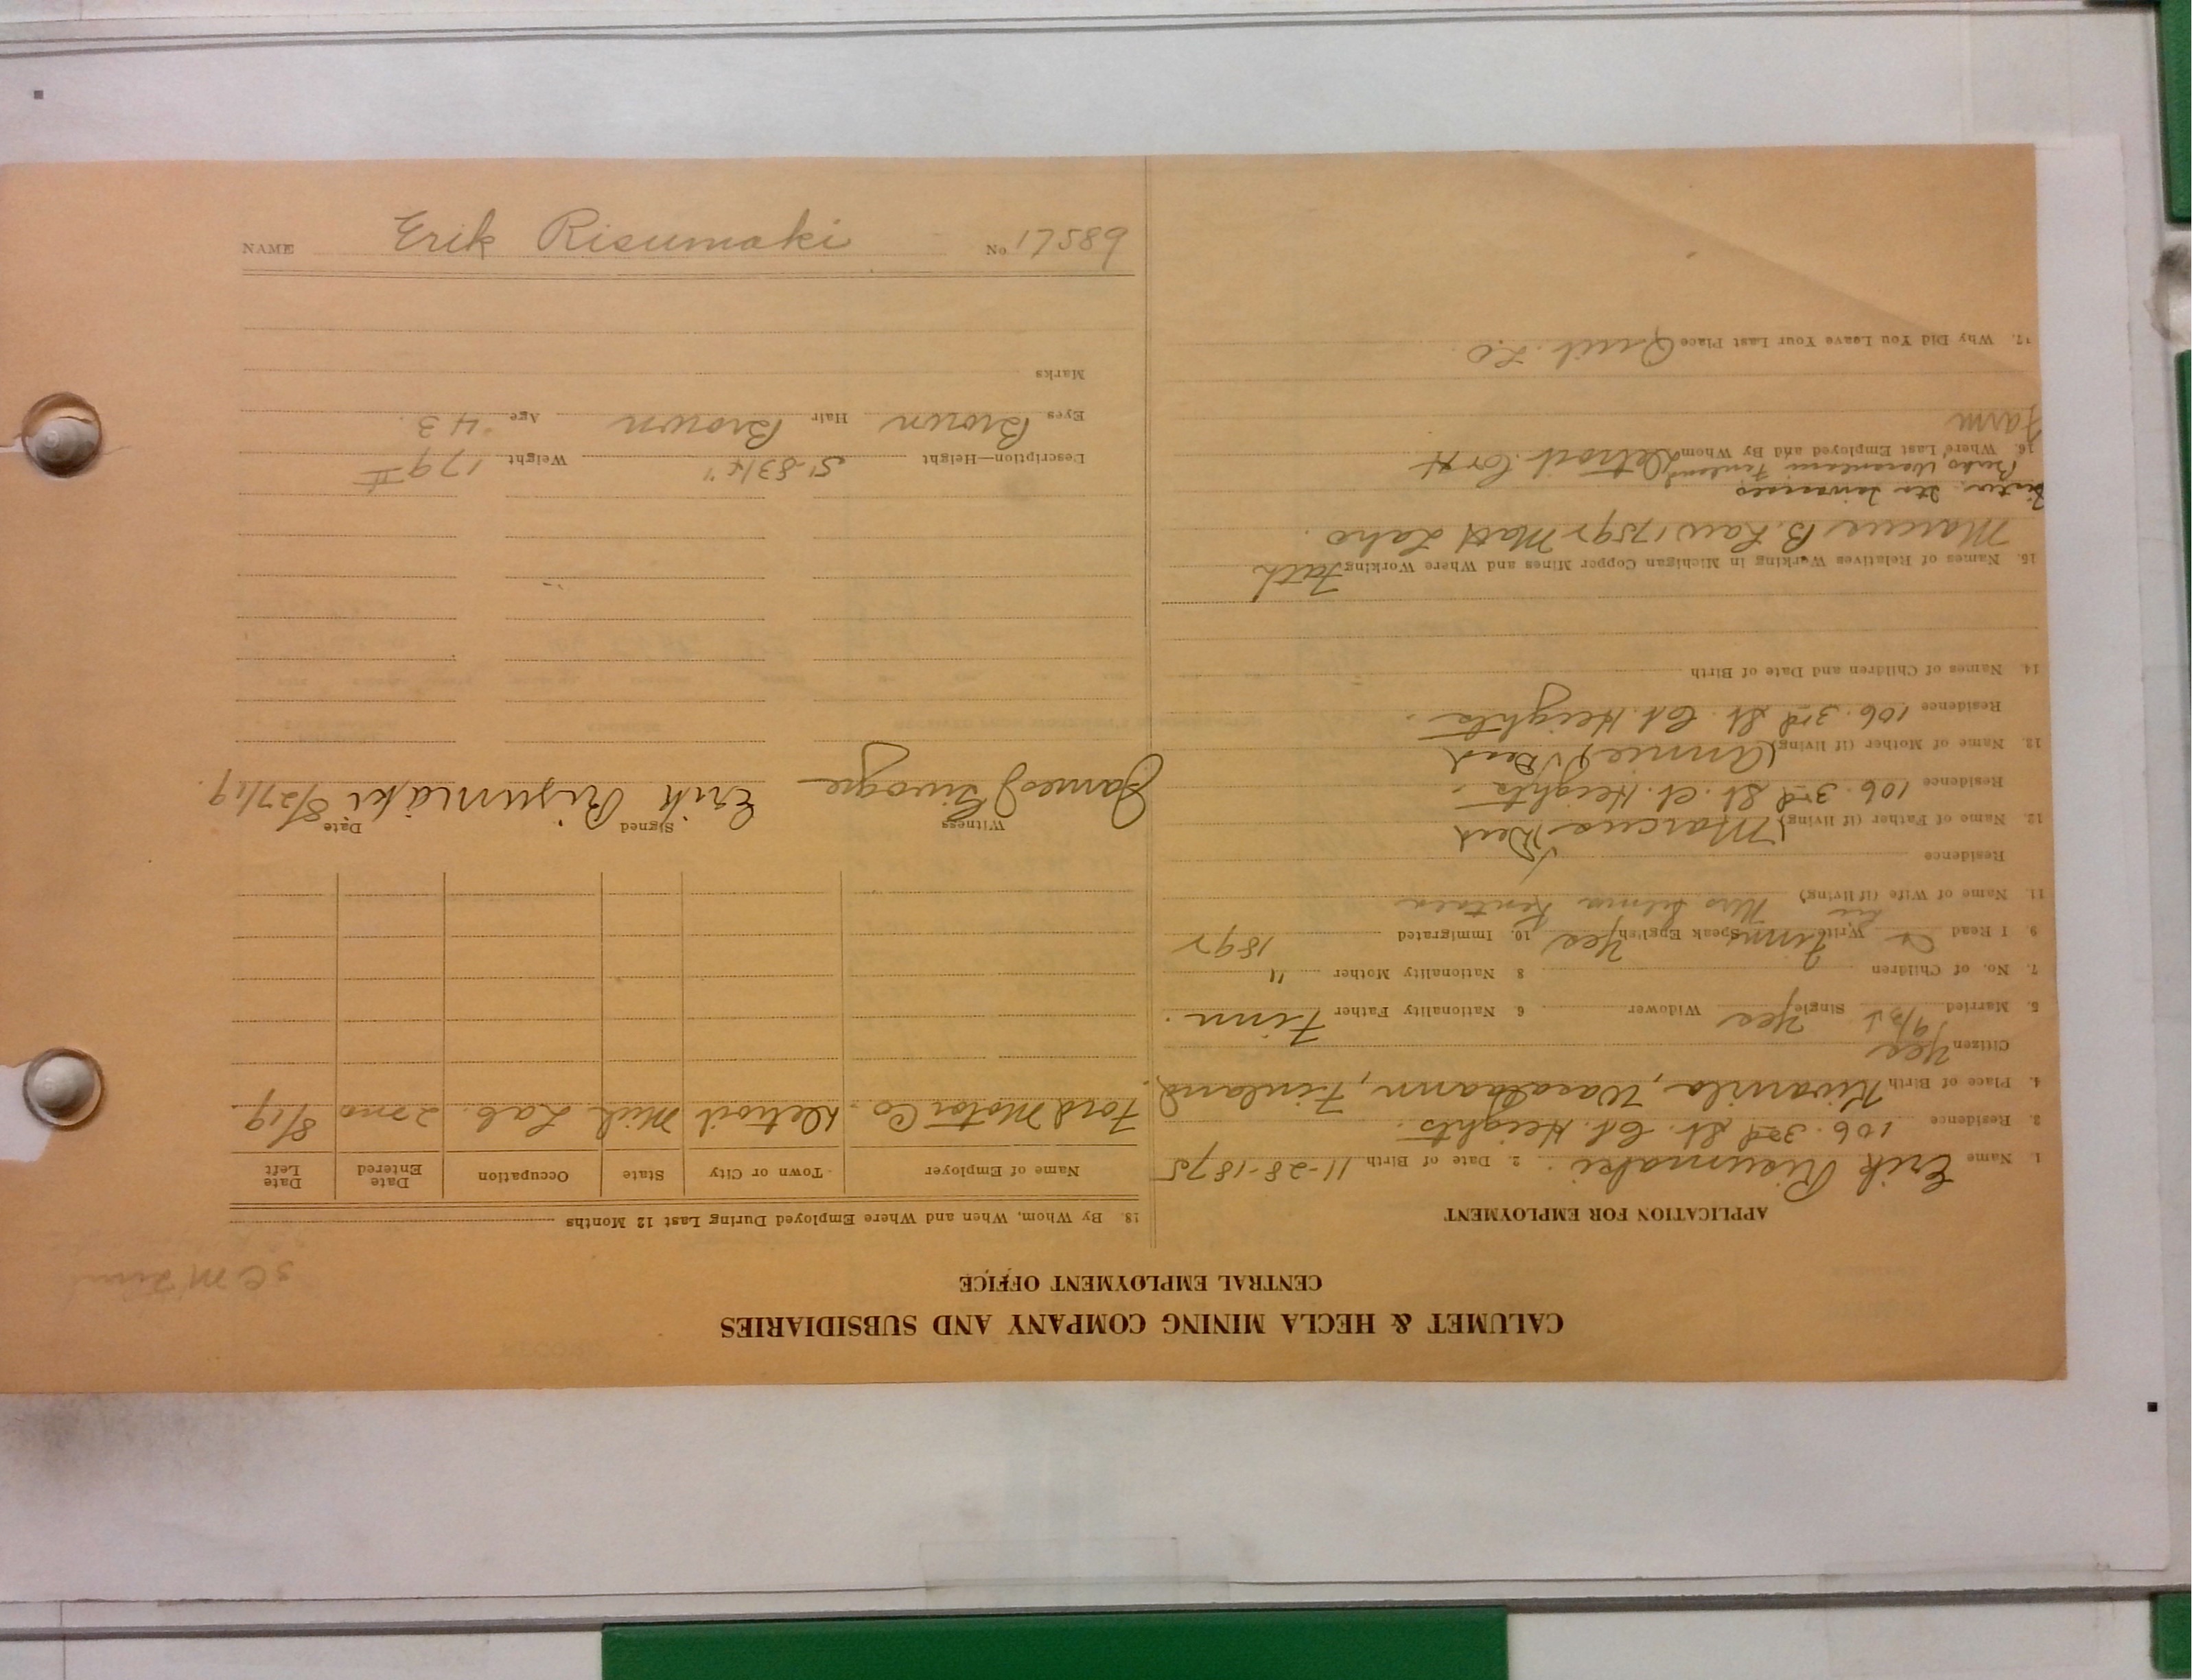 CALUMET & HECLA MINING COMPANY AND SUBSIDIARIES
CENTRAL EMPLOYMENT OFFICE
APPLICATION FOR EMPLOYMENT
1. Name Erik Risumaki. 2. Date of Birth 11-28-1875
3. Residence 106. 3rd St. Cl. Heights.
4. Place of Birth Finland
Citizen Yes
5. Married Single Yes Widower 6 Nationality Father Finn.
7. No. of Children 8 Nationality Mother "
9. I Read Write Finn Speak English Yes 10. Immigrated 1892
11. Name of Wife (if living) Mrs
Residence
12. Name of Father (if living) (Marcus) Dead
Residence 106. 3rd St. Cl. Heights.
13. Name of Mother (if living) (Annie) Dead
Residence 106. 3rd St. Cl. Heights.
14. Names of Children and Date of Birth
15. Names of Relatives Working in Michigan Copper Mines and Where Working Fath
Marcus B. 17592 Matt Laho.
16. Where Last Employed and By Whom Detroit
Farm
17. Why Did You Leave Your Last Place Quit.
18. By Whom, When and Where Employed During Last 12 Months
Name of Employer Town or City State Occupation Date Entered Date Left
Ford Motor Co. Detroit Mich Lab. 2 mo 8/19.
Witness Signed Date
James Erik Risumäki 8/27/19.
Description—Height 5'-8 3/4" Weight 179
Eyes Brown Hair Brown Age 43.
Marks
NAME Erik Risumaki No. 17589